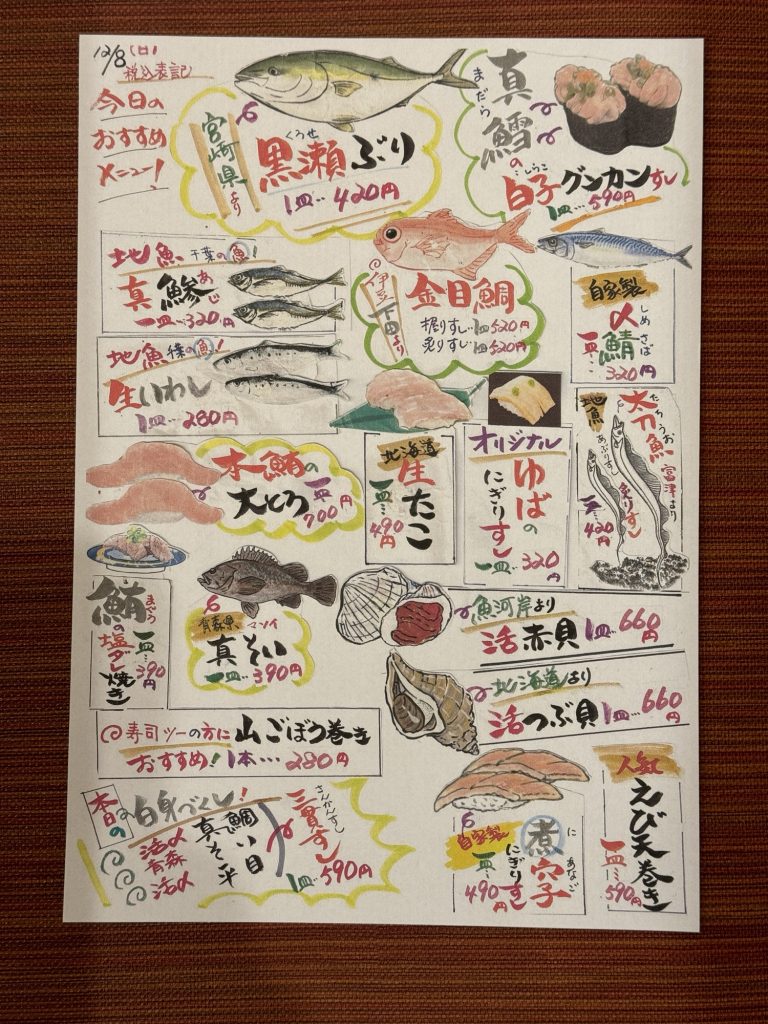 12/8(日)
税込表記
今日の
おすすめ
メニュー!
宮崎県より
くろせ
黒瀬ぶり
1皿…420円
まだら
真鱈の
しらこ
白子グンカンすし
1皿…590円
地魚 千葉の魚!
真鯵
あじ
一皿…320円
伊豆下田より
金目鯛
握りすし…1皿520円
炙りすし…1皿520円
自家製
〆鯖
しめさば
一皿…320円
地魚 千葉の魚!
生いわし
1皿…280円
本鮪の
大とろ
一皿700円
北海道
生たこ
一皿…490円
オリジナル
ゆばの
にぎりすし
一皿…320円
地魚
たちうお
太刀魚
富津より
あぶりすし
炙りすし
一皿…420円
まぐろ
鮪の
塩タレ焼き
一皿…390円
青森県 マソイ
真そい
一皿…390円
魚河岸より
活赤貝 1皿…660円
北海道より
活つぶ貝 1皿…660円
寿司ツーの方に
おすすめ!
山ごぼう巻き
1本…280円
本日の白身づくし!
活〆 鯛
青森 真そい
活〆 平目
さんかんすし
三貫すし
1皿590円
自家製
煮穴子
に あなご
にぎりすし
一皿…490円
人気
えび天巻き
一皿…590円